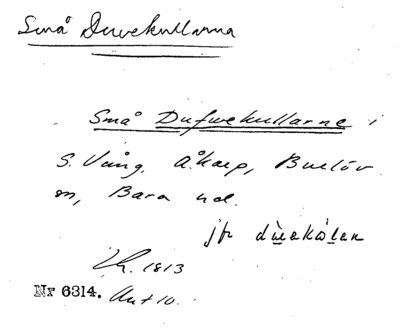 Små Duvekullarna
Små Dufwekullarne i
S. Vång, Åkarp, Burlöv
sn, Bara hd.
jfr
1813
Nr 6314. Akt 10.